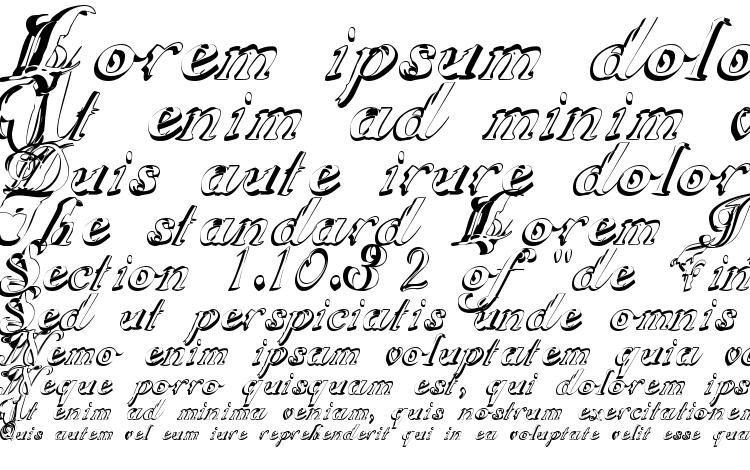 Lorem ipsum dolo
Ut enim ad minim v
Duis aute irure dolor
The standard Lorem I
Section 1.10.32 of "de Fin
Sed ut perspiciatis unde omnis
Nemo enim ipsam voluptatem quia vo
Neque porro quisquam est, qui dolorem ips
Ut enim ad minima veniam, quis nostrum exercitationem
Quis autem vel eum iure reprehenderit qui in ea voluptate velit esse qua